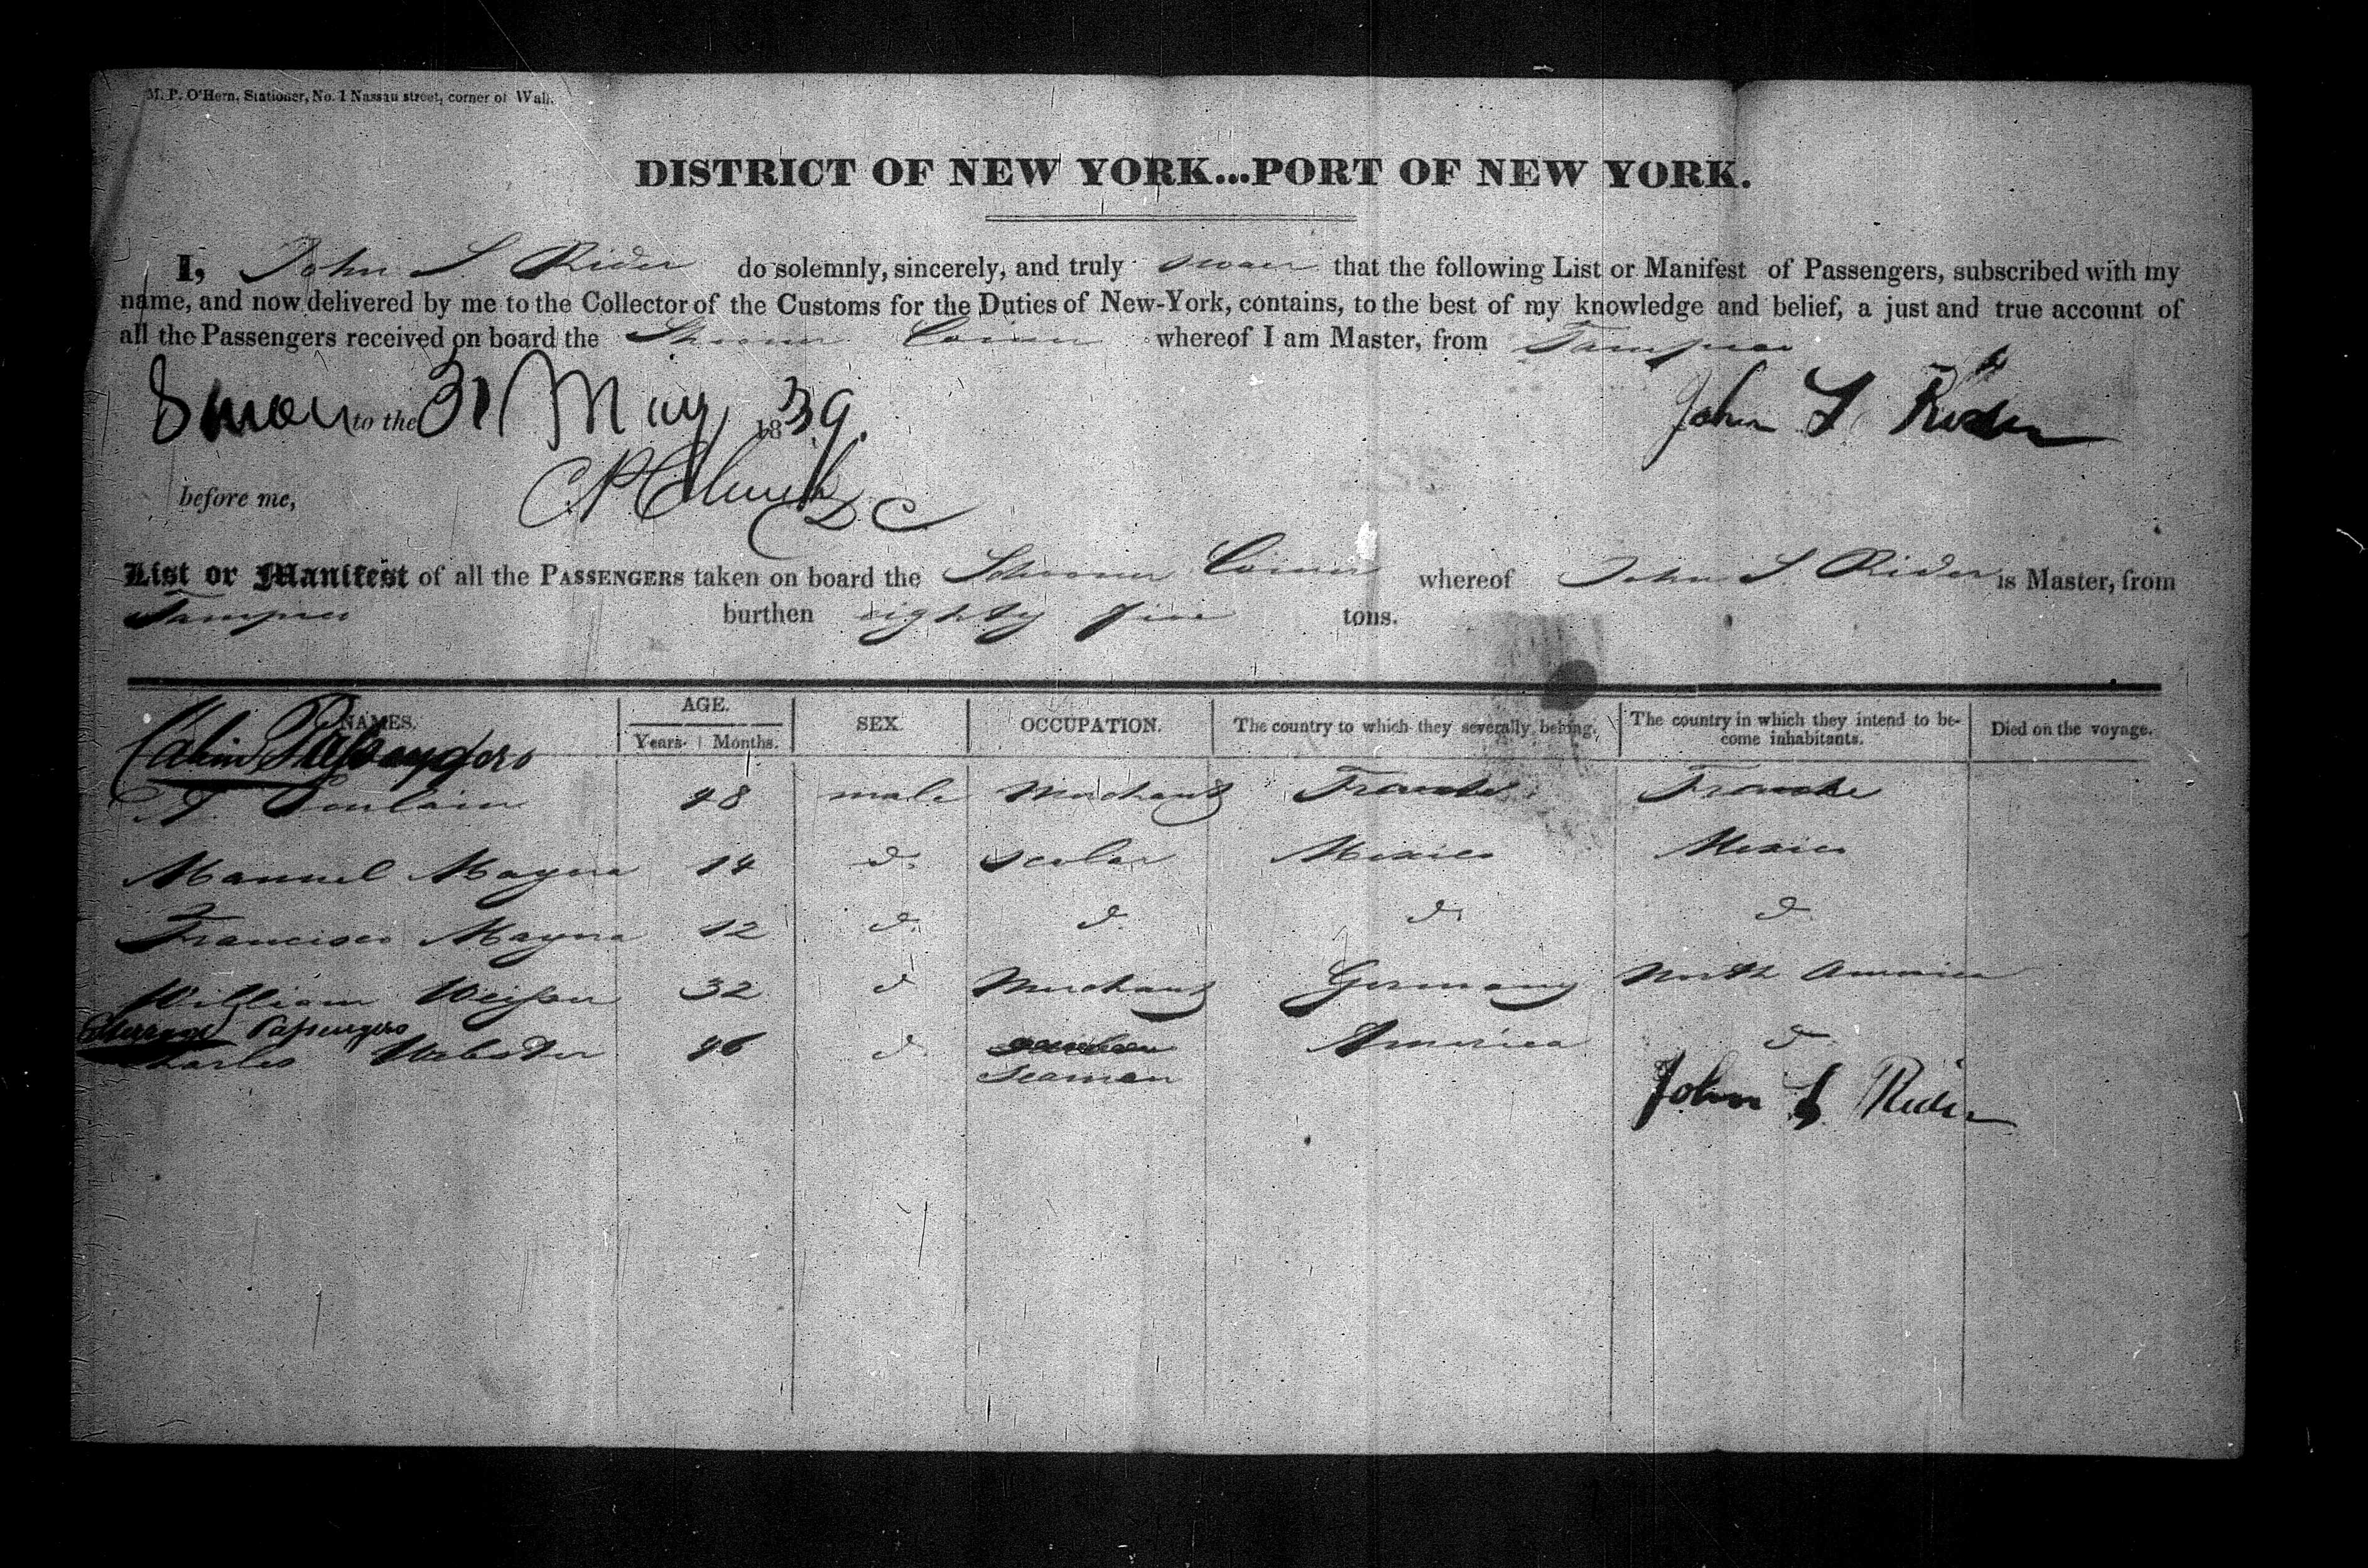 M. P. O'Hern, Stationer, No. 1 Nassau street, corner of Wall.
DISTRICT OF NEW YORK...PORT OF NEW YORK.
I, John S Rider do solemnly, sincerely, and truly swear that the following List or Manifest of Passengers, subscribed with my
name, and now delivered by me to the Collector of the Customs for the Duties of New-York, contains, to the best of my knowledge and belief, a just and true account of
all the Passengers received on board the whereof I am Master, from
Sworn to the 31 May 1839. John S Rider
before me, DC
List or Manifest of all the PASSENGERS taken on board the Schooner whereof John S. Rider is Master, from
burthen eighty five tons.
NAMES. AGE. SEX. OCCUPATION. The country to which they severally belong. The country in which they intend to be- Died on the voyage.
Years. Months. come inhabitants.
Cabin Passengers
male Merchant
Manuel Mayna 14 do scolar Mexico Mexico
Francisco Mayna 12 do do do do
William 32 do Merchant Germany North America
Steerage Passengers
Charles Webster 46 do America do
Seaman
John S Rider